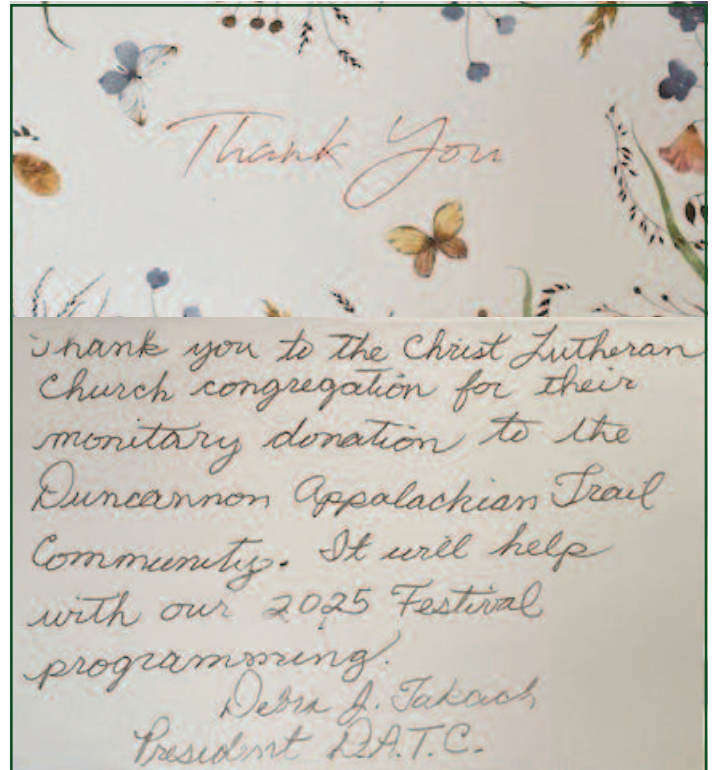 Thank You
Thank you to the Christ Lutheran
Church congregation for their
monitary donation to the
Duncannon Appalachian Trail
Community. It will help
with our 2025 Festival
programming.
Debra J. Takach
President D.A.T.C.